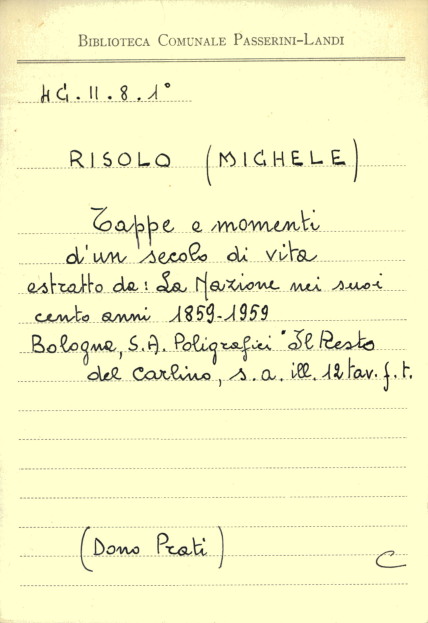 BIBLIOTECA COMUNALE PASSERINI-LANDI
HG.II.8.1°
RISOLO (MICHELE)
Tappe e momenti
d'un secolo di vita
estratto da: La Nazione nei suoi
cento anni 1859-1959
Bologna, S.A. Poligrafici "Il Resto
del Carlino, s.a. ill. 12 tav. f.t.
(Dono Prati)
C